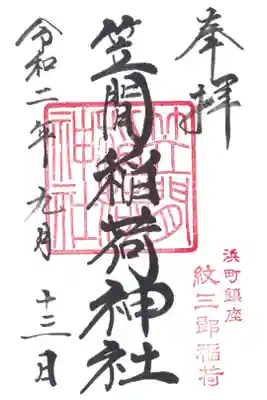 奉拝
笠間稲荷神社
笠間稲荷神社
浜町鎮座
紋三郎稲荷
令和二年九月
十三日